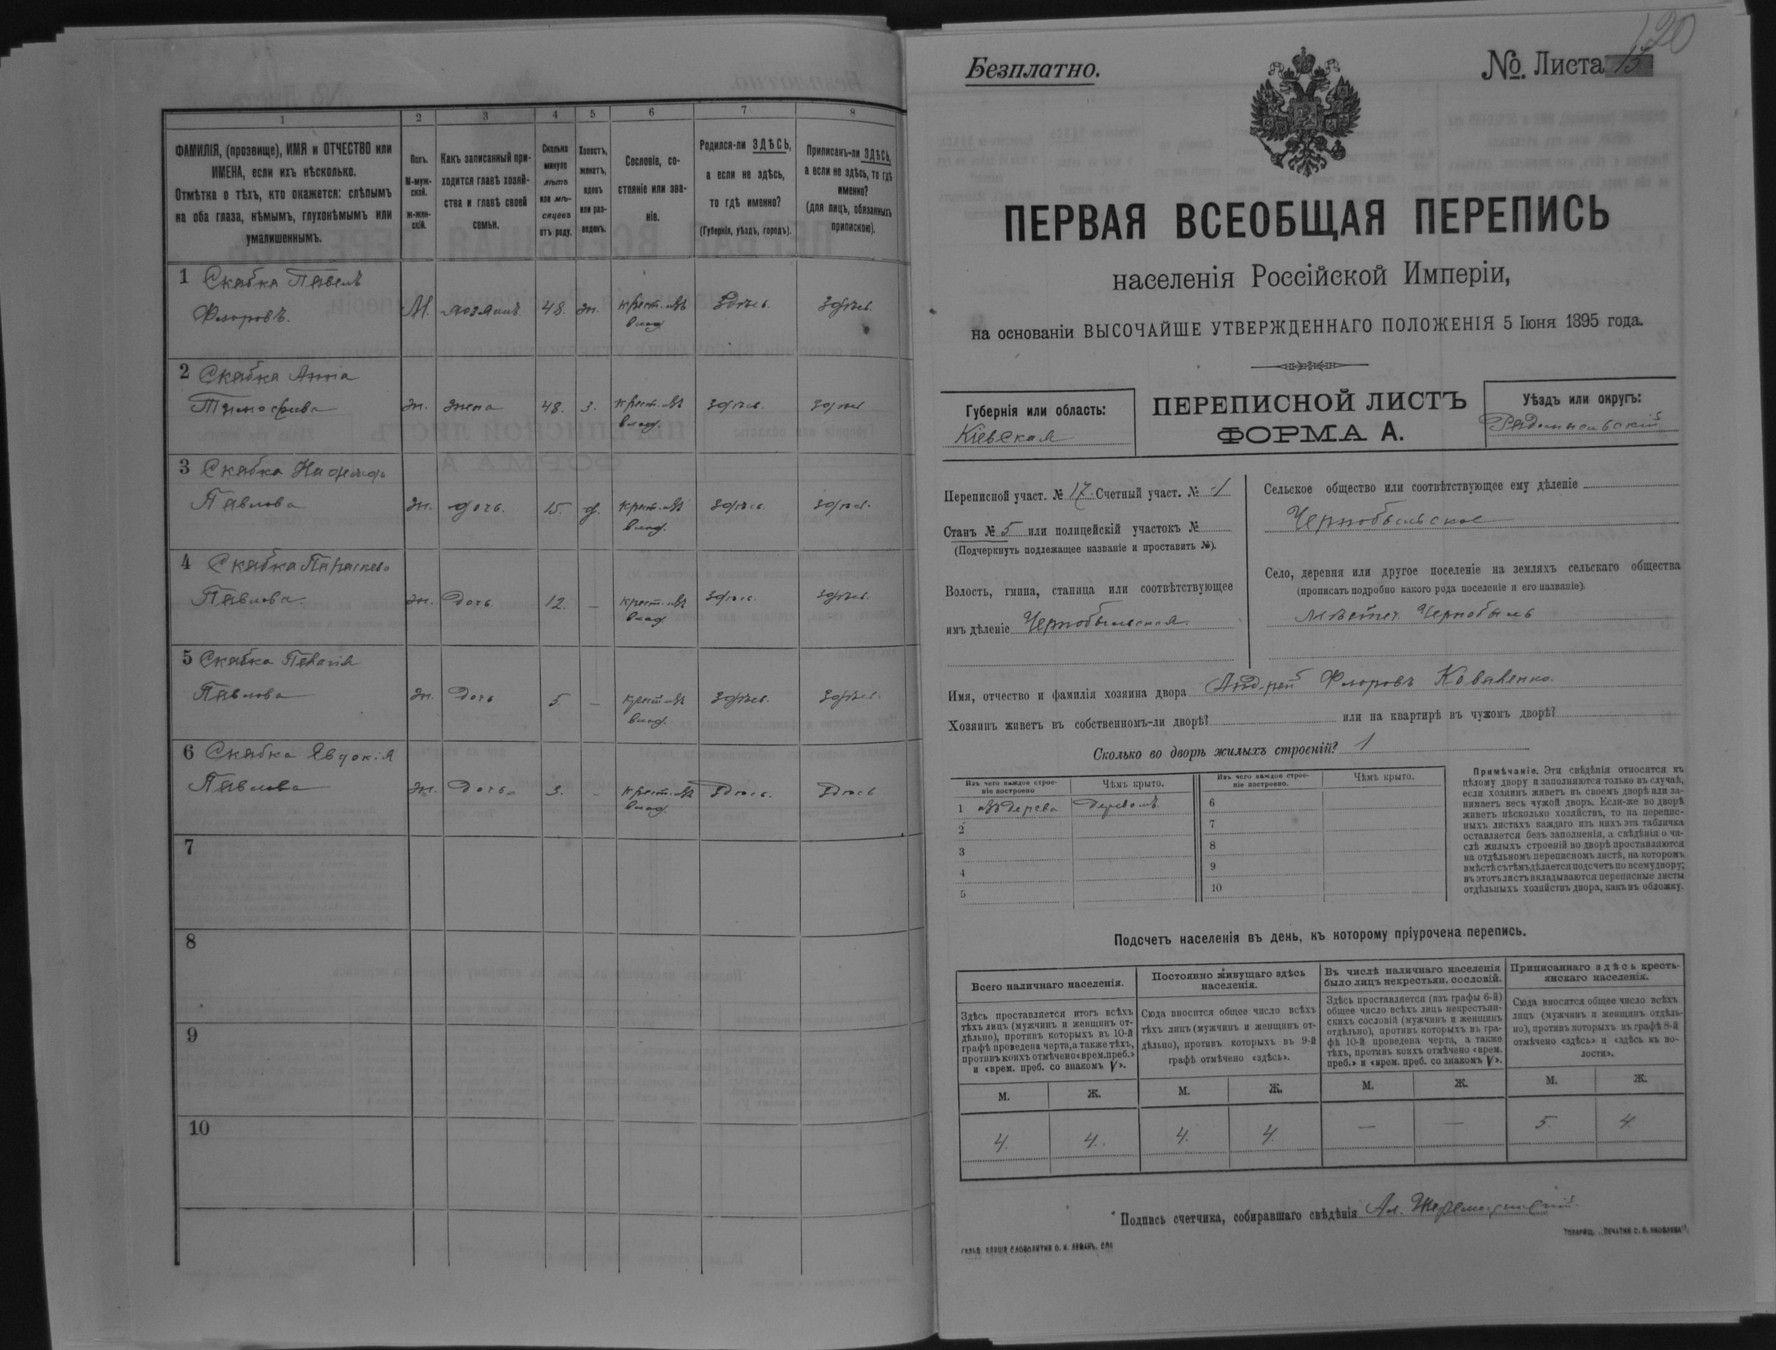 1
2
3
4
5
6
7
8
ФАМИЛІЯ, (прозвище), ИМЯ и ОТЧЕСТВО или
ИМЕНА, если ихъ нѣсколько.
Отмѣтка о тѣхъ, кто окажется: слѣпымъ
на оба глаза, нѣмымъ, глухонѣмымъ или
умалишеннымъ.
Полъ.
М-муж-
ской.
ж-жен-
скій.
Какъ записанный при-
ходится главѣ хозяй-
ства и главѣ своей
семьи.
Сколько
минуло
лѣтъ
или мѣ-
сяцевъ
отъ роду.
Холостъ,
женатъ,
вдовъ
или раз-
веденъ.
Сословіе, со-
стояніе или зва-
ніе.
Родился-ли ЗДѢСЬ,
а если не здѣсь,
то гдѣ именно?
(Губернія, уѣздъ, городъ).
Приписанъ-ли ЗДѢСЬ,
а если не здѣсь, то гдѣ
именно?
(для лицъ, обязанныхъ
припискою).
1 Скабка Павелъ
Флоровъ. М. хозяинъ 48 ж. крест. влад. Здѣсь. здѣсь.
2 Скабка Анна
Тимофеева ж. жена 48. з. крест. влад. здѣсь. здѣсь
3 Скабка
Павлова ж. дочь. 15. д. крест. влад. здѣсь. здѣсь.
4 Скабка
Павлова. ж. Дочь 12. – крест. влад. здѣсь здѣсь.
5 Скабка
Павлова ж. Дочь 5. – крест. влад. здѣсь. здѣсь.
6 Скабка Явдокія
Павлова ж. Дочь 3. – крест. влад. Здѣсь. Здѣсь
7
8
9
10
120
Безплатно.
№ Листа 15
ПЕРВАЯ ВСЕОБЩАЯ ПЕРЕПИСЬ
населенія Россійской Имперіи,
на основаніи ВЫСОЧАЙШЕ УТВЕРЖДЕННАГО ПОЛОЖЕНІЯ 5 Іюня 1895 года.
Губернія или область:
Кіевская
ПЕРЕПИСНОЙ ЛИСТЪ
ФОРМА А.
Уѣздъ или округъ:
Радомысльскій
Переписной участ. № 17. Счетный участ. № 1
Станъ № 5 или полицейскій участокъ №
(Подчеркнуть подлежащее названіе и проставить №).
Волость, гмина, станица или соотвѣтствующее
имъ дѣленіе Чернобыльская
Сельское общество или соотвѣтствующее ему дѣленіе
Чернобыльское
Село, деревня или другое поселеніе на земляхъ сельскаго общества
(прописать подробно какого рода поселеніе и его названіе).
Мѣстеч. Чернобыль
Имя, отчество и фамилія хозяина двора Андрей Флоровъ Коваленко
Хозяинъ живетъ въ собственномъ-ли дворѣ? или на квартирѣ въ чужомъ дворѣ?
Сколько во дворѣ жилыхъ строеній? 1
Изъ чего каждое строе-
ніе построено
Чѣмъ крыто.
Изъ чего каждое строе-
ніе построено.
Чѣмъ крыто.
1 изъ дерева деревомъ
2
3
4
5
6
7
8
9
10
Примѣчаніе. Эти свѣдѣнія относятся къ
цѣлому двору и заполняются только въ случаѣ,
если хозяинъ живетъ въ своемъ дворѣ или за-
нимаетъ весь чужой дворъ. Если-же во дворѣ
живетъ нѣсколько хозяйствъ, то на перепис-
ныхъ листахъ каждаго изъ нихъ эта табличка
оставляется безъ заполненія, а свѣдѣнія о чи-
слѣ жилыхъ строеній во дворѣ проставляются
на отдѣльномъ переписномъ листѣ, на которомъ
вмѣстѣ съ тѣмъ дѣлается подсчетъ по всему двору;
въ этотъ листъ вкладываются переписные листы
отдѣльныхъ хозяйствъ двора, какъ въ обложку.
Подсчетъ населенія въ день, къ которому пріурочена перепись.
Всего наличнаго населенія.
Постоянно живущаго здѣсь
населенія.
Въ числѣ наличнаго населенія
было лицъ некрестьян. сословій.
Приписаннаго здѣсь кресть-
янскаго населенія.
Здѣсь проставляется итогъ всѣхъ
тѣхъ лицъ (мужчинъ и женщинъ от-
дѣльно), противъ которыхъ въ 10-й
графѣ проведена черта, а также тѣхъ,
противъ коихъ отмѣчено «врем. преб.»
и «врем. преб. со знакомъ V».
Сюда вносится общее число всѣхъ
тѣхъ лицъ (мужчинъ и женщинъ от-
дѣльно), противъ которыхъ въ 9-й
графѣ отмѣчено «здѣсь».
Здѣсь проставляется (изъ графы 6-й)
общее число всѣхъ лицъ некрестьян-
скихъ сословій (мужчинъ и женщинъ
отдѣльно), противъ которыхъ въ гра-
фѣ 10-й проведена черта, а также
тѣхъ, противъ коихъ отмѣчено «врем.
преб.» и «врем. преб. со знакомъ V».
Сюда вносится общее число всѣхъ
лицъ (мужчинъ и женщинъ отдѣль-
но), противъ которыхъ въ графѣ 8-й
отмѣчено «здѣсь» и «здѣсь въ во-
лости».
М. Ж. М. Ж. М. Ж. М. Ж.
4. 4. 4. 4 — — 5 4
Подпись счетчика, собиравшаго свѣдѣнія Ал.